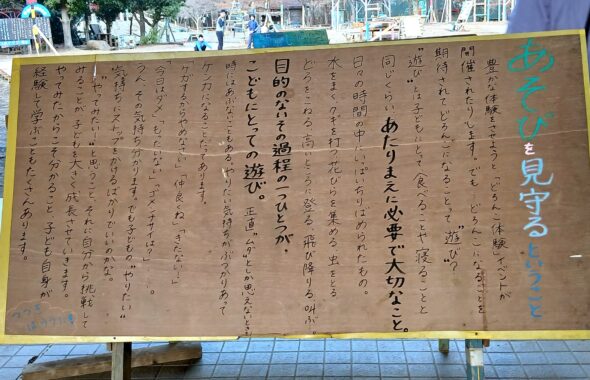 あそびを見守るということ
豊かな体験をさせようと「どろんこ体験」イベントが
開催されたりします。でも どろんこになることを
期待されてどろんこになることって"遊び"？
"遊び"とは子どもにとって食べることや寝ることと
同じくらい あたりまえに必要で大切なこと。
日々の時間の中にいっぱいちりばめられたもの。
水をまく クギを打つ 花びらを集める 虫をとる
どろをこねる 高いところに登る 飛び降りる 叫ぶ
目的のないその過程の一つひとつが、
こどもにとっての遊び。
正直"ムダ"としか思えないことも
時にはあぶないこともある。やりたい気持ちがぶつかりあって
ケンカになることだってあります。
「ケガするからやめなさい」「仲良くね」「きたない！」
「今日はダメ」「もったいない」「ゴメンナサイは？」
うん、その気持ち分かります。でも子どもの"やりたい"
気持ちにストップをかけるばかりでいいのかな。
"やってみたい！"と思うこと、それに自分から挑戦して
みることが子どもを大きく成長させていきます。
やってみたからこそ分かること、子ども自身が
経験して学ぶこともたくさんあります。